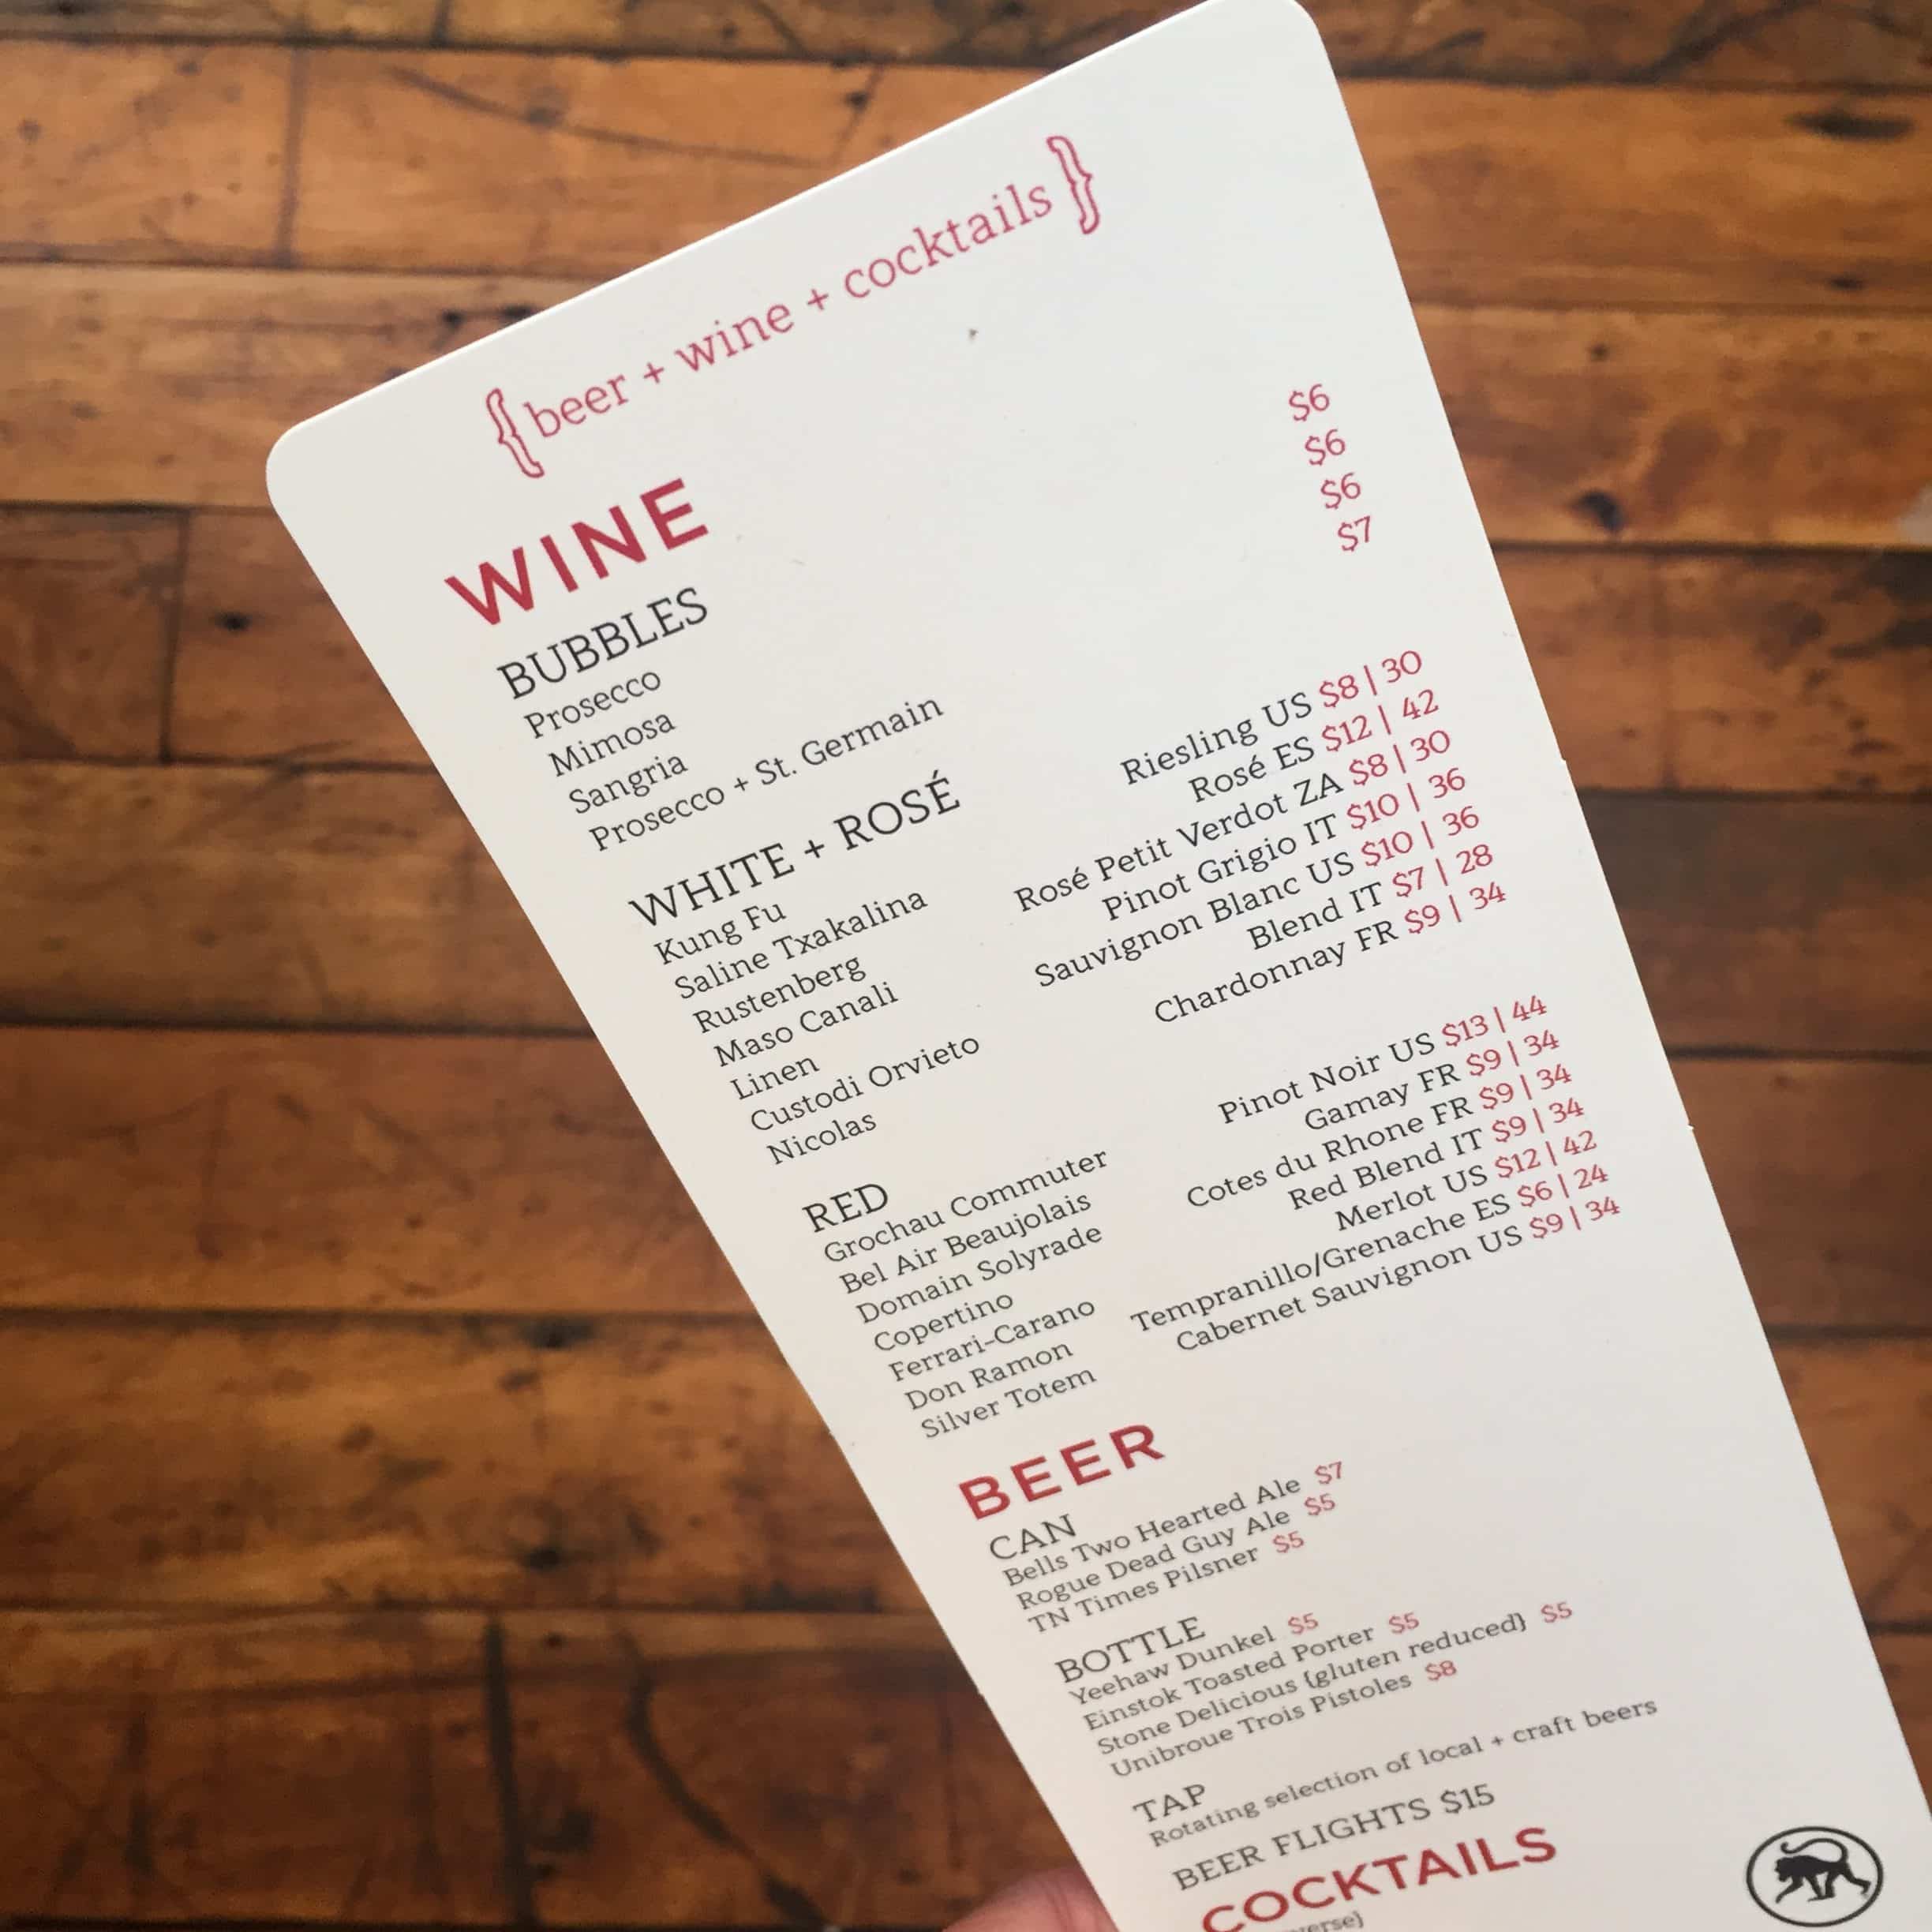 {beer + wine + cocktails}
WINE
BUBBLES
Prosecco $6
Mimosa $6
Sangria $6
Prosecco + St. Germain $7
WHITE + ROSÉ
Kung Fu Riesling US $8 | 30
Saline Txakalina Rosé ES $12 | 42
Rustenberg Rosé Petit Verdot ZA $8 | 30
Maso Canali Pinot Grigio IT $10 | 36
Linen Sauvignon Blanc US $10 | 36
Custodi Orvieto Blend IT $7 | 28
Nicolas Chardonnay FR $9 | 34
RED
Grochau Commuter Pinot Noir US $13 | 44
Bel Air Beaujolais Gamay FR $9 | 34
Domain Solyrade Cotes du Rhone FR $9 | 34
Copertino Red Blend IT $9 | 34
Ferrari-Carano Merlot US $12 | 42
Don Ramon Tempranillo/Grenache ES $6 | 24
Silver Totem Cabernet Sauvignon US $9 | 34
BEER
CAN
Bells Two Hearted Ale $7
Rogue Dead Guy Ale $5
TN Times Pilsner $5
BOTTLE
Yeehaw Dunkel $5
Einstok Toasted Porter $5
Stone Delicious {gluten reduced} $5
Unibroue Trois Pistoles $8
TAP
Rotating selection of local + craft beers
BEER FLIGHTS $15
COCKTAILS